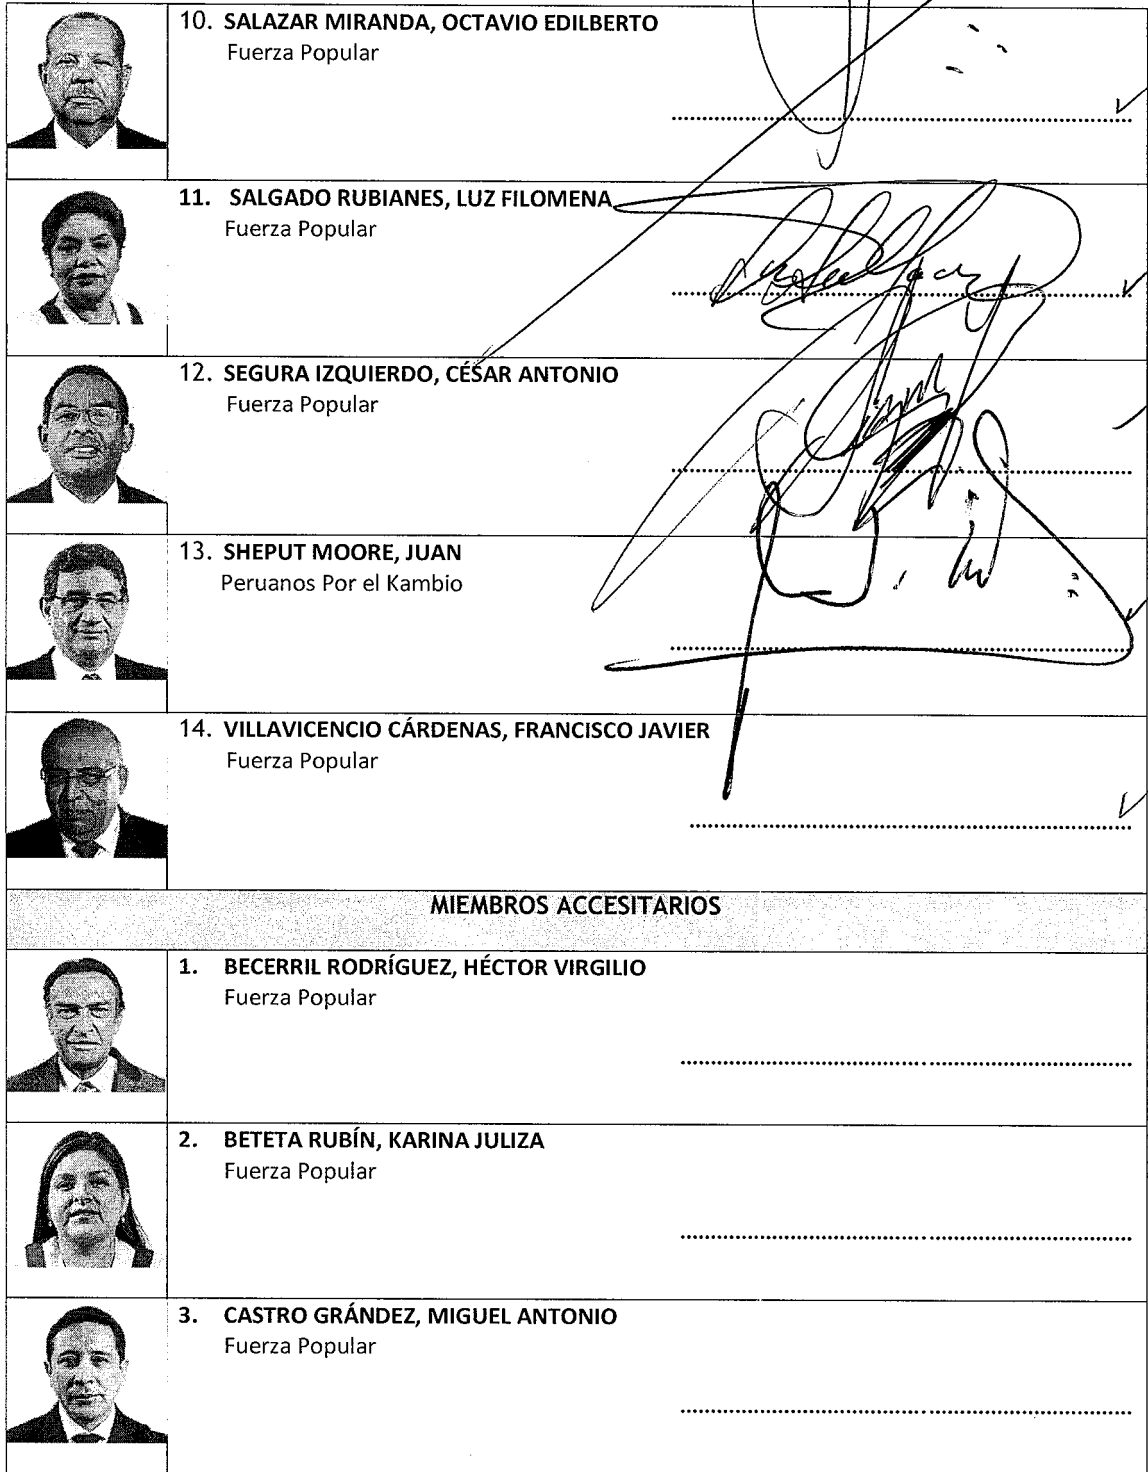 10. SALAZAR MIRANDA, OCTAVIO EDILBERTO
Fuerza Popular
11. SALGADO RUBIANES, LUZ FILOMENA
Fuerza Popular
12. SEGURA IZQUIERDO, CÉSAR ANTONIO
Fuerza Popular
13. SHEPUT MOORE, JUAN
Peruanos Por el Kambio
14. VILLAVICENCIO CÁRDENAS, FRANCISCO JAVIER
Fuerza Popular
MIEMBROS ACCESITARIOS
1. BECERRIL RODRÍGUEZ, HÉCTOR VIRGILIO
Fuerza Popular
2. BETETA RUBÍN, KARINA JULIZA
Fuerza Popular
3. CASTRO GRÁNDEZ, MIGUEL ANTONIO
Fuerza Popular